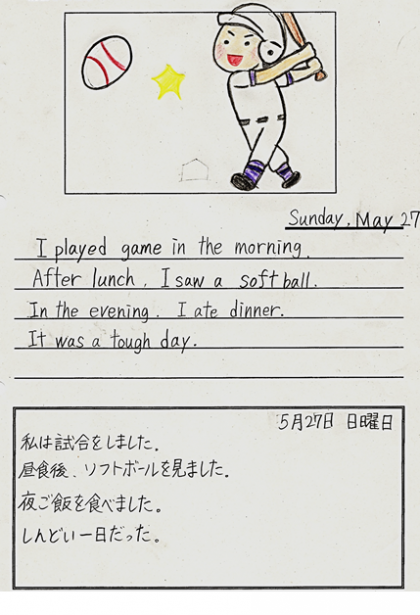 Sunday, May 27
I played game in the morning.
After lunch, I saw a softball.
In the evening, I ate dinner.
It was a tough day.
5月27日 日曜日
私は試合をしました。
昼食後、ソフトボールを見ました。
夜ご飯を食べました。
しんどい一日だった。